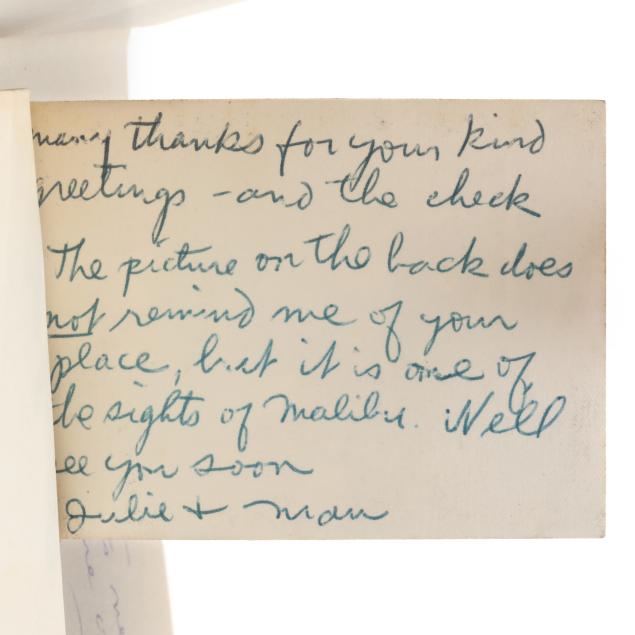 many thanks for your kind
greetings - and the check
The picture on the back does
not remind me of your
place, but it is one of
the sights of Malibu. We'll
see you soon
Julie + Man